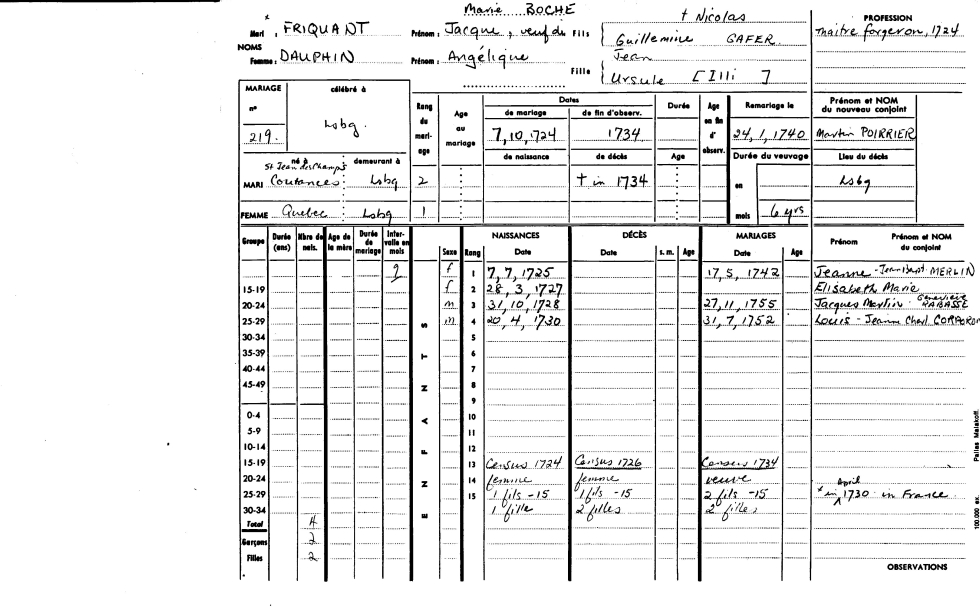 Marie BOCHE
Mari : FRIQUANT Prénom : Jacque, veuf de Fils { † Nicolas
Guillemine GAFER
PROFESSION
maitre forgeron, 1724
NOMS
Femme : DAUPHIN Prénom : Angélique Fille { Jean
Ursule [Illi ]
MARIAGE célébré à
n°
219. Lsbg.
Rang du mariage Age au mariage Dates Durée Age en fin d'observ. Remariage le Prénom et NOM du nouveau conjoint
de mariage de fin d'observ.
7,10,1724 1734 24,1,1740 Martin POIRRIER
de naissance de décès Age Durée du veuvage Lieu du décès
né à demeurant à
St Jean des Champs
MARI Coutances Lsbg 2 † in 1734 en Lsbg
FEMME Quebec Lsbg 1 mois 6 yrs
Groupe Durée (ans) Nbre de nais. Age de la mère Durée de mariage Intervalle en mois ENFANTS Sexe Rang NAISSANCES Date DÉCÈS Date s. m. Age MARIAGES Date Age Prénom Prénom et NOM du conjoint
9 f 1 7,7,1725 17,5,1742 Jeanne - Jean Bapt MERLIN
15-19 f 2 28,3,1727 Elisabeth Marie
20-24 m 3 31,10,1728 27,11,1755 Jacques Martin - Geneviève RABASSE
25-29 m 4 20,4,1730 31,7,1752 Louis - Jeanne Charl CORPORON
30-34 5
35-39 6
40-44 7
45-49 8
9
0-4 10
5-9 11
10-14 12
15-19 13 Census 1724 Census 1726 Census 1734
20-24 14 femme femme veuve
25-29 15 1 fils -15 1 fils -15 2 fils -15 * in April 1730 in France
30-34 1 fille 2 filles 2 filles
Total 4
Garçons 2
Filles 2
OBSERVATIONS
100.000 ex. Pallas Malakoff.